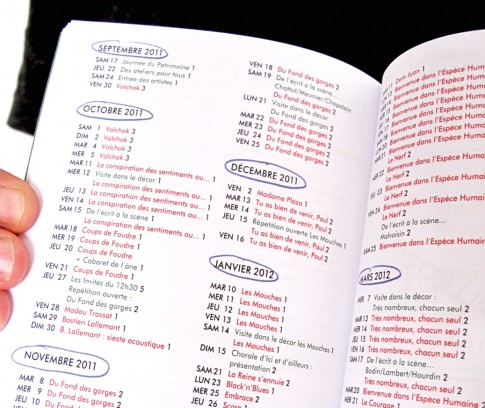 SEPTEMBRE 2011
SAM 17 Journée du Patrimoine 1
JEU 22 Des ateliers pour tous 1
SAM 24 Entrée des artistes 1
VEN 30 Volchok 3
OCTOBRE 2011
SAM 1 Volchok 3
DIM 2 Volchok 3
MAR 4 Volchok 3
MER 5 Volchok 3
MAR 11 La conspiration des sentiments ou... 1
MER 12 Visite de décor 1
La conspiration des sentiments ou... 1
JEU 13 La conspiration des sentiments ou... 1
VEN 14 La conspiration des sentiments ou... 1
SAM 15 De l'écrit à la scène 1
La conspiration des sentiments ou... 1
MAR 18 Coups de Foudre 1
MER 19 Coups de Foudre 1
JEU 20 Coups de Foudre
+ Cabaret de l'âne 1
VEN 21 Coups de Foudre 1
JEU 27 Les Invités du 12h30 5
Répétition ouverte :
Du Fond des gorges 2
VEN 28 Madou Trossat 1
SAM 29 Bastien Lallemant 1
DIM 30 B. Lallemant : sieste acoustique 1
NOVEMBRE 2011
MAR 8 Du Fond des gorges 2
MER 9 Du Fond des gorges 2
JEU 10 Du Fond des gorges
VEN 18 Du Fond des gorges 2
SAM 19 De l'écrit à la scène...
Chattot/Meunier/Chapalain
Du Fond des gorges 2
LUN 21 Visite de décor
Du Fond des gorges 2
MAR 22 Du Fond des gorges 2
MER 23 Du Fond des gorges 2
JEU 24 Du Fond des gorges 2
VEN 25 Du Fond des gorges 2
DÉCEMBRE 2011
VEN 2 Madame Plaza 1
MAR 13 Tu as bien de venir, Paul 2
MER 14 Tu as bien de venir, Paul 2
JEU 15 Répétition ouverte Les Mouches 1
Tu as bien de venir, Paul 2
VEN 16 Tu as bien de venir, Paul 2
JANVIER 2012
MAR 10 Les Mouches 1
MER 11 Les Mouches 1
JEU 12 Les Mouches 1
VEN 13 Les Mouches 1
SAM 14 Visite de décor Les Mouches 1
Les Mouches 1
DIM 15 Chorale d'Ici et d'ailleurs :
présentation 2
SAM 21 La Reine s'ennuie 2
LUN 23 Black'n'Blues 1
MER 25 Embrace 2
JEU 26
Dom Juan 1
Bienvenue dans l'Espèce Humaine
Bienvenue dans l'Espèce Humaine
Bienvenue dans l'Espèce Humaine
Le Nerf 2
Bienvenue dans l'Espèce Humaine
Le Nerf 2
Bienvenue dans l'Espèce Humaine
Le Nerf 2
De l'écrit à la scène...
Malvoisin 2
SAM 25 Bienvenue dans l'Espèce Humaine
MARS 2012
MER 7 Visite dans le décor :
Très nombreux, chacun seul 2
MAR 13 Très nombreux, chacun seul 2
MER 14 Très nombreux, chacun seul 2
JEU 15 Très nombreux, chacun seul 2
VEN 16 Très nombreux, chacun seul 2
SAM 17 De l'écrit à la scène...
Bodin/Lambert/Hourdin 2
Très nombreux, chacun seul 2
MAR 20 Bienvenue dans l'Espèce Humaine 2
MER 21 Le Courage 1